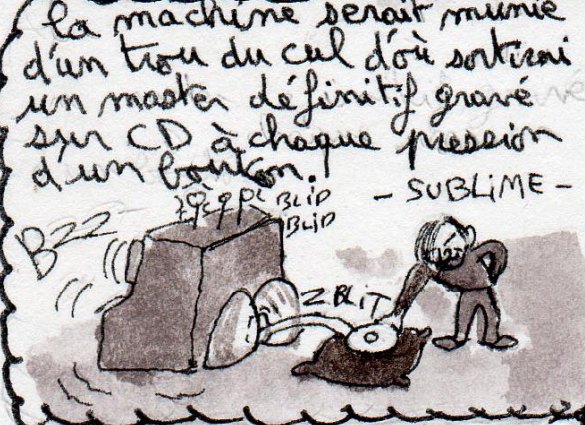 la machine serait munie
d'un trou du cul d'où sortirai
un master définitif gravé
sur CD à chaque pression
d'un bouton.
- SUBLIME -
BLID
BLID
BZZ-
ZBLIT